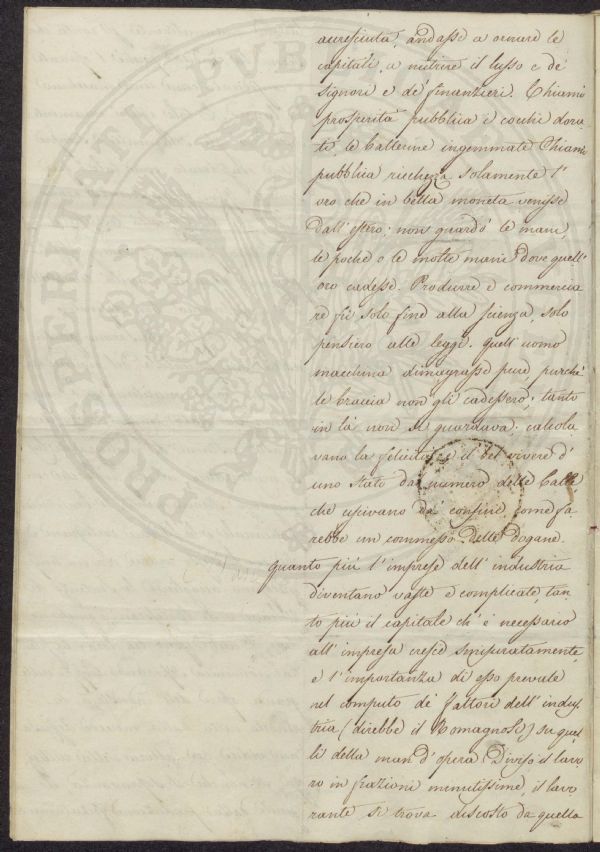 accresciuta, andasse a ornare le
capitali, a nutrire il lusso e de'
signori e de' finanzieri. Chiamò
prosperità pubblica i cocchi dora-
ti, le ballerine ingemmate. Chiamò
pubblica ricchezza solamente l'
oro che in bella moneta venisse
dall'estero; non guardò le mani,
le poche o le molte mani dove quell'
oro cadesse. Produrre e commercia
re fu solo fine alla scienza, solo
pensiero alle leggi. Quell'uomo
macchina dimagrasse pure purchè
le braccia non gli cadessero; tanto
in là non si guardava; calcola
vano la felicità e il bel vivere d'
uno stato dal numero delle balle
che uscivano da' confini come fa
rebbe un commesso delle dogane.
Quanto più l'imprese dell'industria
diventano vaste e complicate, tan
to più il capitale ch'è necessario
all'impresa cresce smisuratamente,
e l'importanza di esso prevale
nel computo de' fattori dell'indus
tria (direbbe il Romagnosi) su quel
li della man d'opera. Diviso il lavo
ro in frazioni minutissime, il lavo
rante si trova discosto da quella
PROSPERITATI PVBL